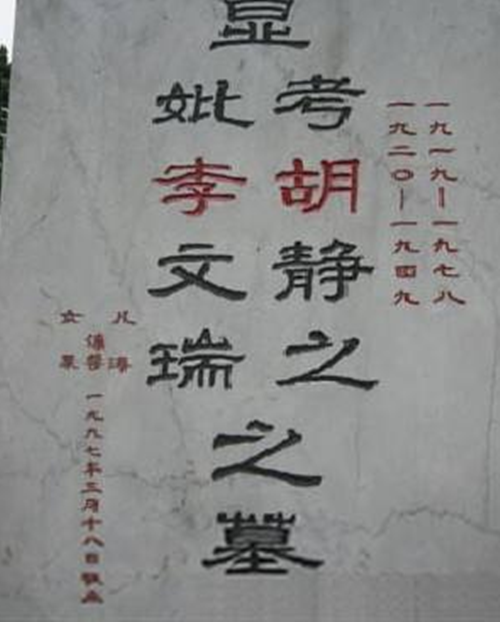 一九一九—一九七八
一九二〇—一九四九
显
考胡静之
妣李文瑞
之墓
儿海
女
一九九七年三月十八日敬立